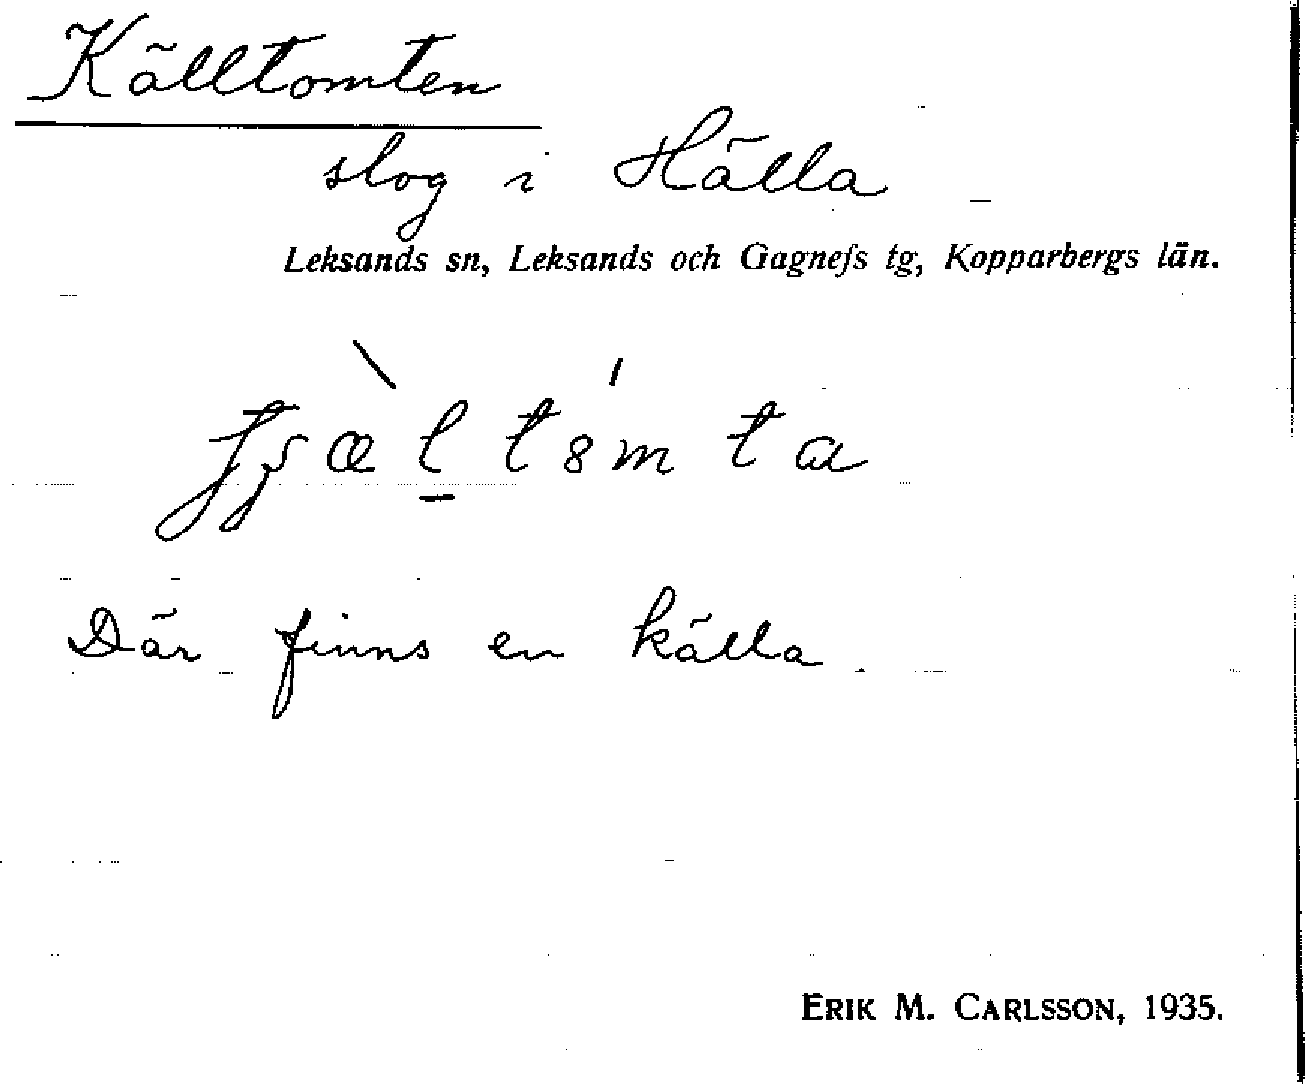 Källtomten
slog i Hälla
Leksands sn, Leksands och Gagnefs tg, Kopparbergs län.
Där finns en källa.
ERIK M. CARLSSON, 1935.